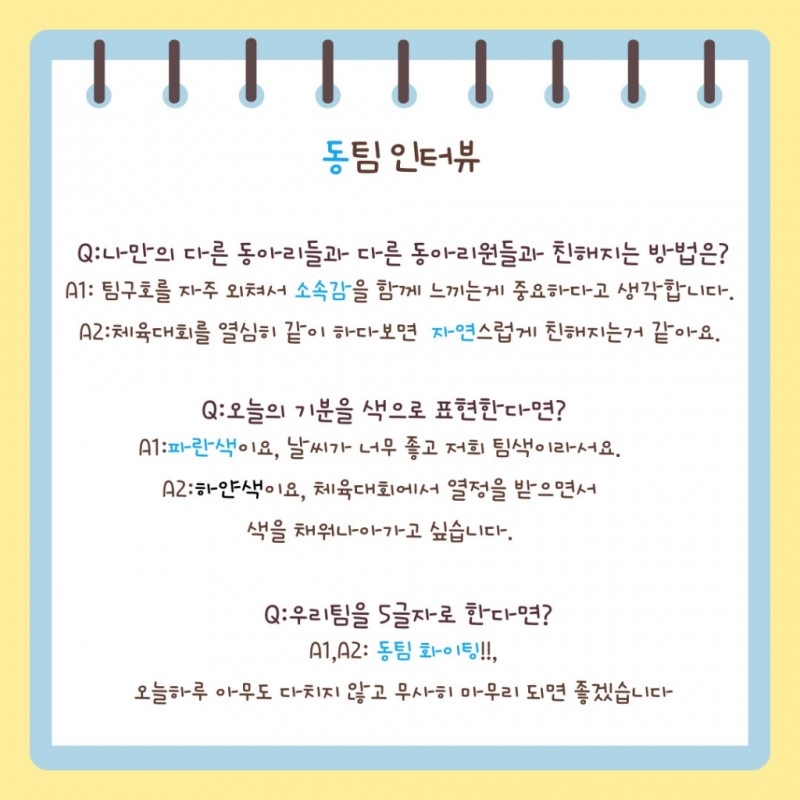 동팀 인터뷰
Q:나만의 다른 동아리들과 다른 동아리원들과 친해지는 방법은?
A1: 팀구호를 자주 외쳐서 소속감을 함께 느끼는게 중요하다고 생각합니다.
A2:체육대회를 열심히 같이 하다보면 자연스럽게 친해지는거 같아요.
Q:오늘의 기분을 색으로 표현한다면?
A1:파란색이요, 날씨가 너무 좋고 저희 팀색이라서요.
A2:하얀색이요, 체육대회에서 열정을 받으면서
색을 채워나아가고 싶습니다.
Q:우리팀을 5글자로 한다면?
A1,A2: 동팀 화이팅!!,
오늘하루 아무도 다치지 않고 무사히 마무리 되면 좋겠습니다